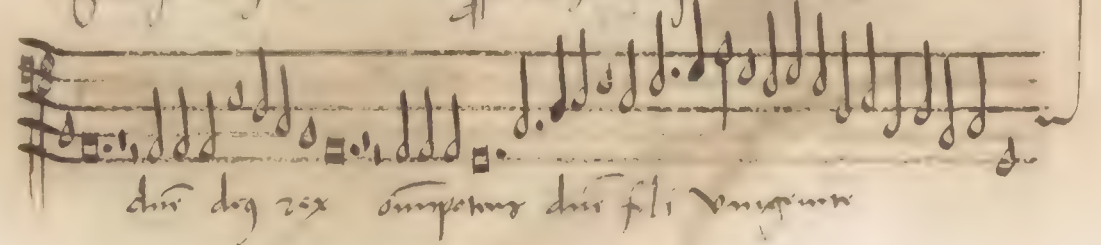 dn̄e deꝯ rex om̄ipotens dn̄e fili vnigenite